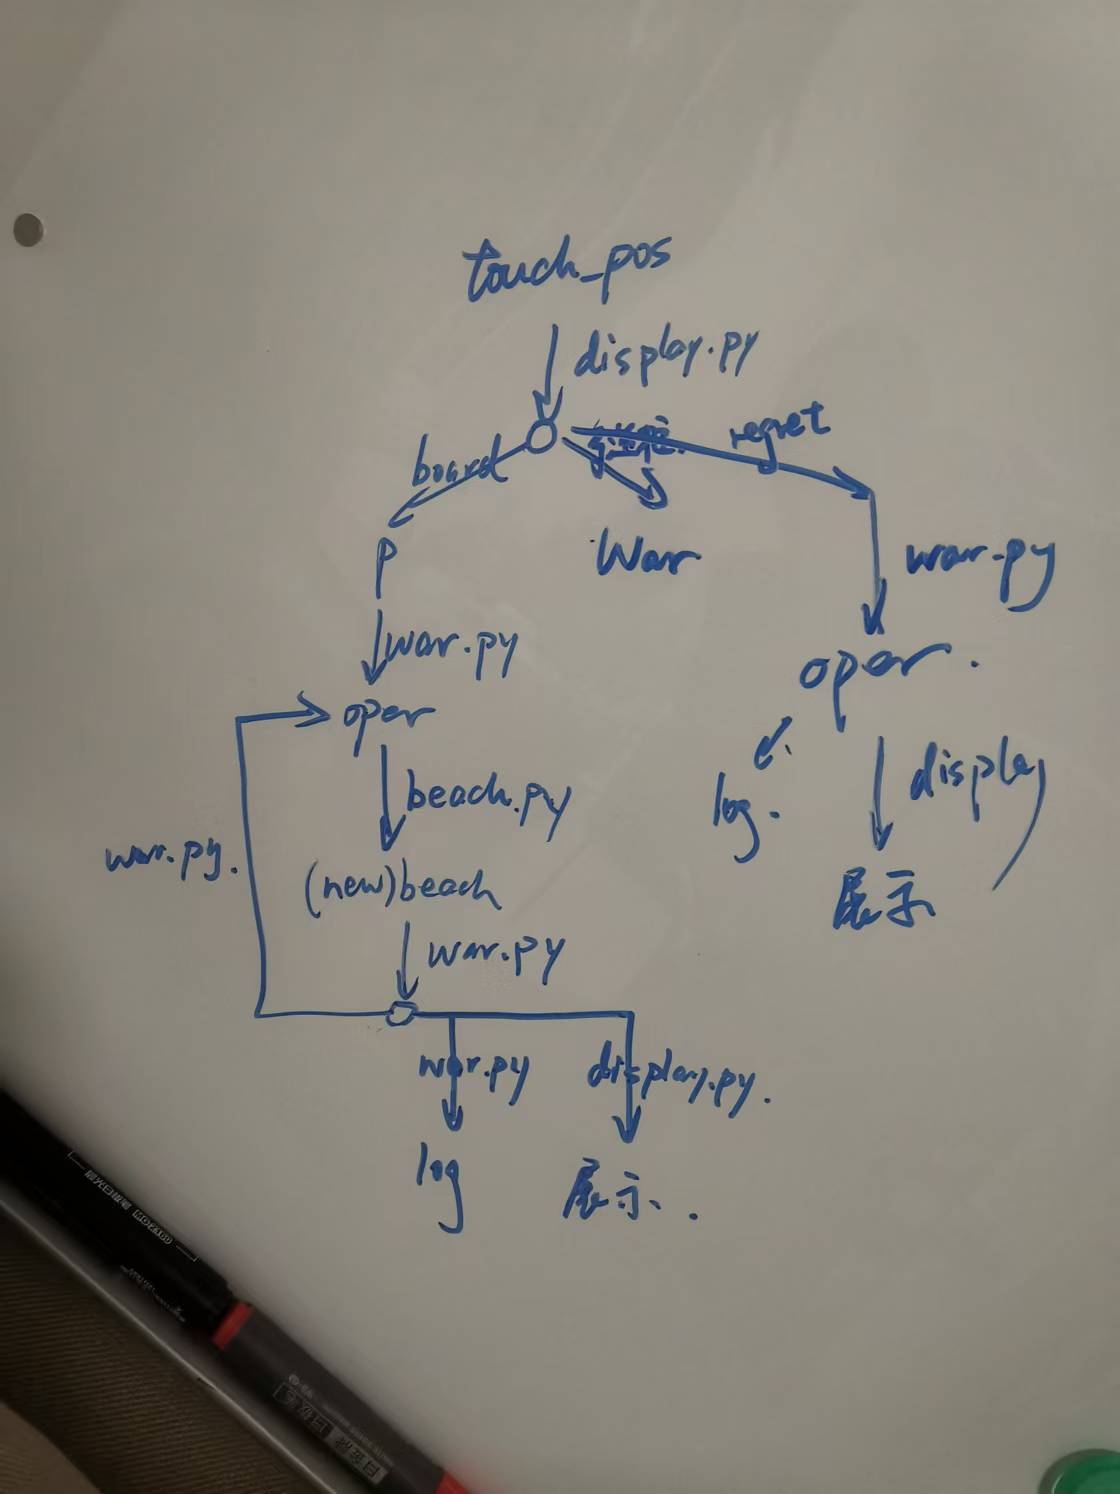 touch_pos
display.py
board
regret
p
War
war.py
war.py
oper
oper.
beach.py
log.
display
war.py.
(new)beach
展示
war.py
war.py
display.py.
log
展示.